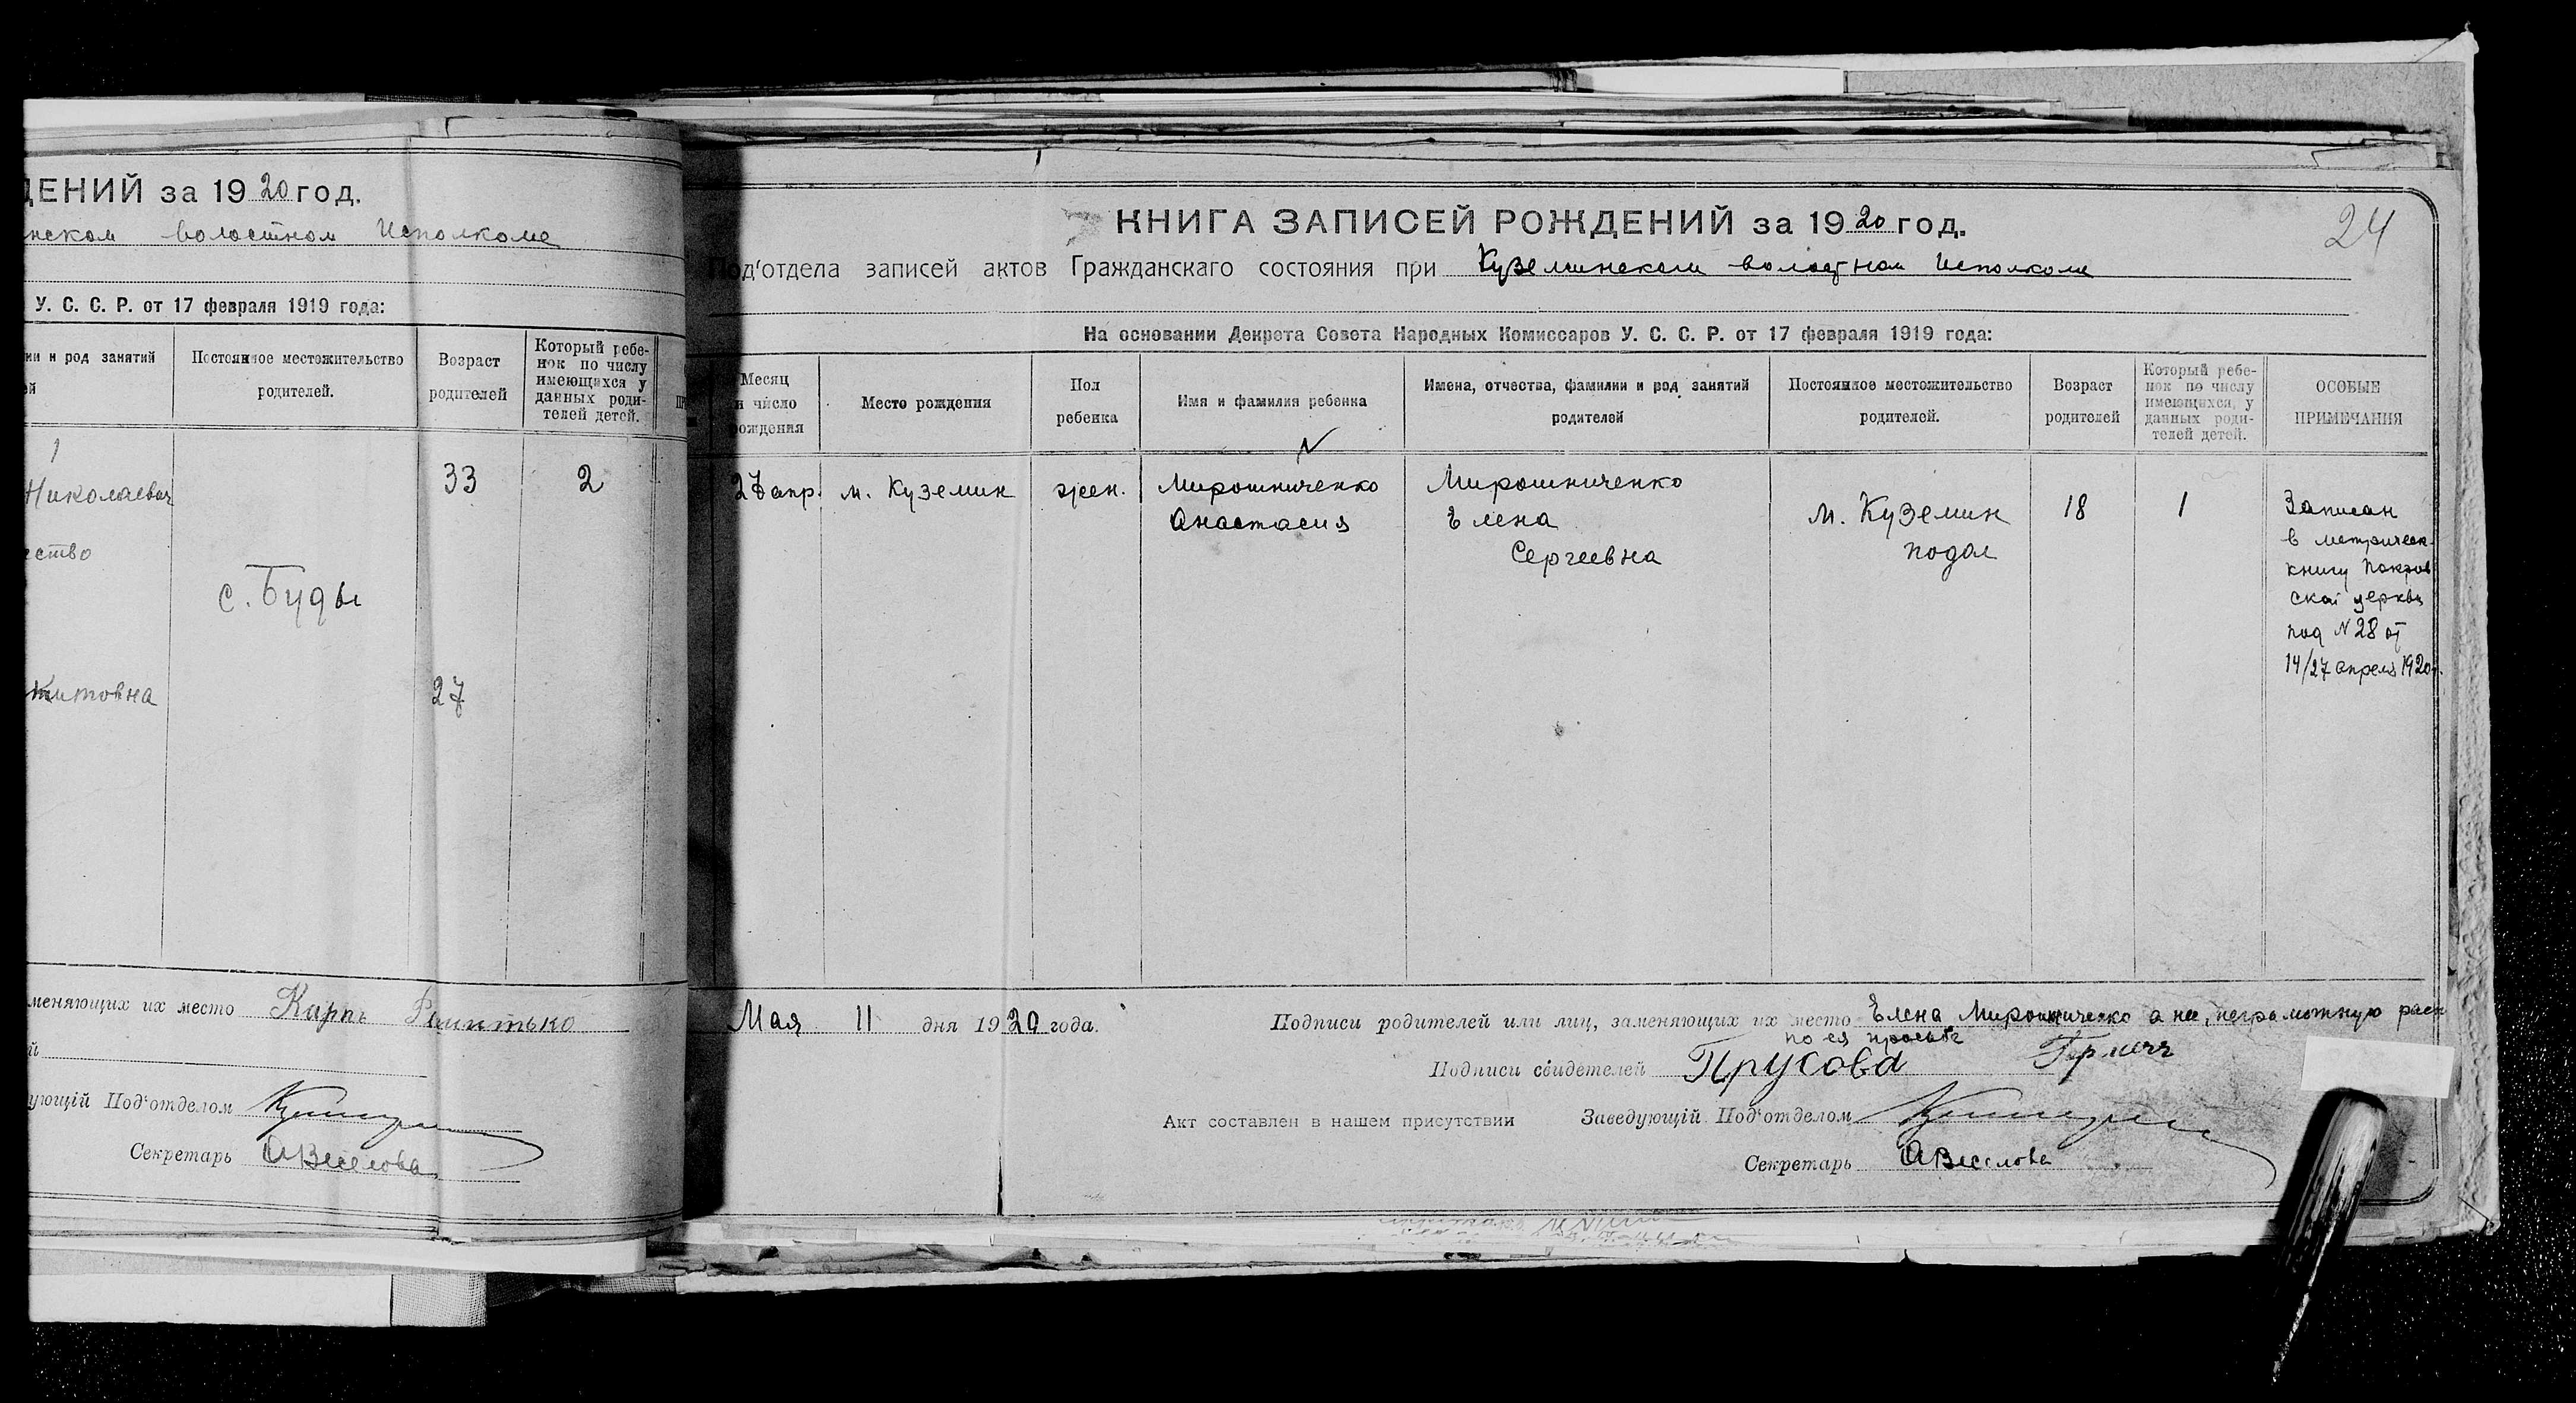 ДЕНИЙ за 1920 год.
нском волостном Исполкоме
У. С. С. Р. от 17 февраля 1919 года:
ии и род занятий
ей
Постоянное местожительство
родителей.
Возраст
родителей
Который ребе-
нок по числу
имеющихся у
данных роди-
телей детей.
1
Николаевич
33
2
ство
с. Буды
титовна
27
меняющих их место Карпъ
й
ующій Под'отделом
Секретарь АВеселова
24
КНИГА ЗАПИСЕЙ РОЖДЕНИЙ за 1920 год.
Под'отдела записей актов Гражданскаго состояния при Куземинском волостном Исполкоме
На основании Декрета Совета Народных Комиссаров У. С. С. Р. от 17 февраля 1919 года:
Месяц
и число
рождения
Место рождения
Пол
ребенка
Имя и фамилия ребенка
Имена, отчества, фамилии и род занятий
родителей
Постоянное местожительство
родителей.
Возраст
родителей
Который ребе-
нок по числу
имеющихся, у
данных роди-
телей детей.
ОСОБЫЕ
ПРИМЕЧАНИЯ
27 апр.
м. Куземин
жен.
Мирошниченко
Анастасия
Мирошниченко
Елена
Сергеевна
м. Куземин
подол
18
1
Записан
в метрическ.
книгу Покров
ской церкви
под N 28 от
14/27 апреля 1920 г.
Мая 11 дня 1920 года.
Подписи родителей или лиц, заменяющих их место Елена Мирошниченко а нее, неграмотную расп
по ея просьбе
Подписи свидетелей Прусова
Акт составлен в нашем присутствии
Заведующій Под'отделом
Секретарь АВеселова